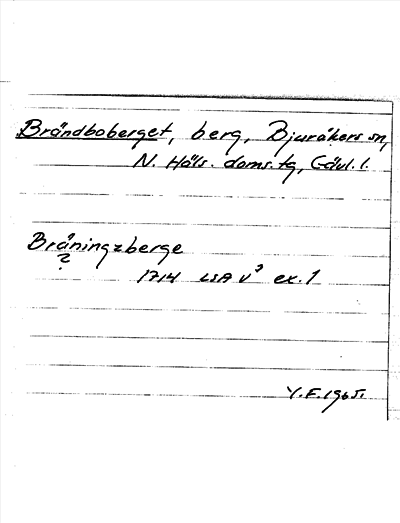 Brändboberget, berg, Bjuråkers sn,
N. Häls. doms. tg, Gävl. l.
Bräningzberge
?
1714 LSA V³ ex. 1
Y.F. 1965.